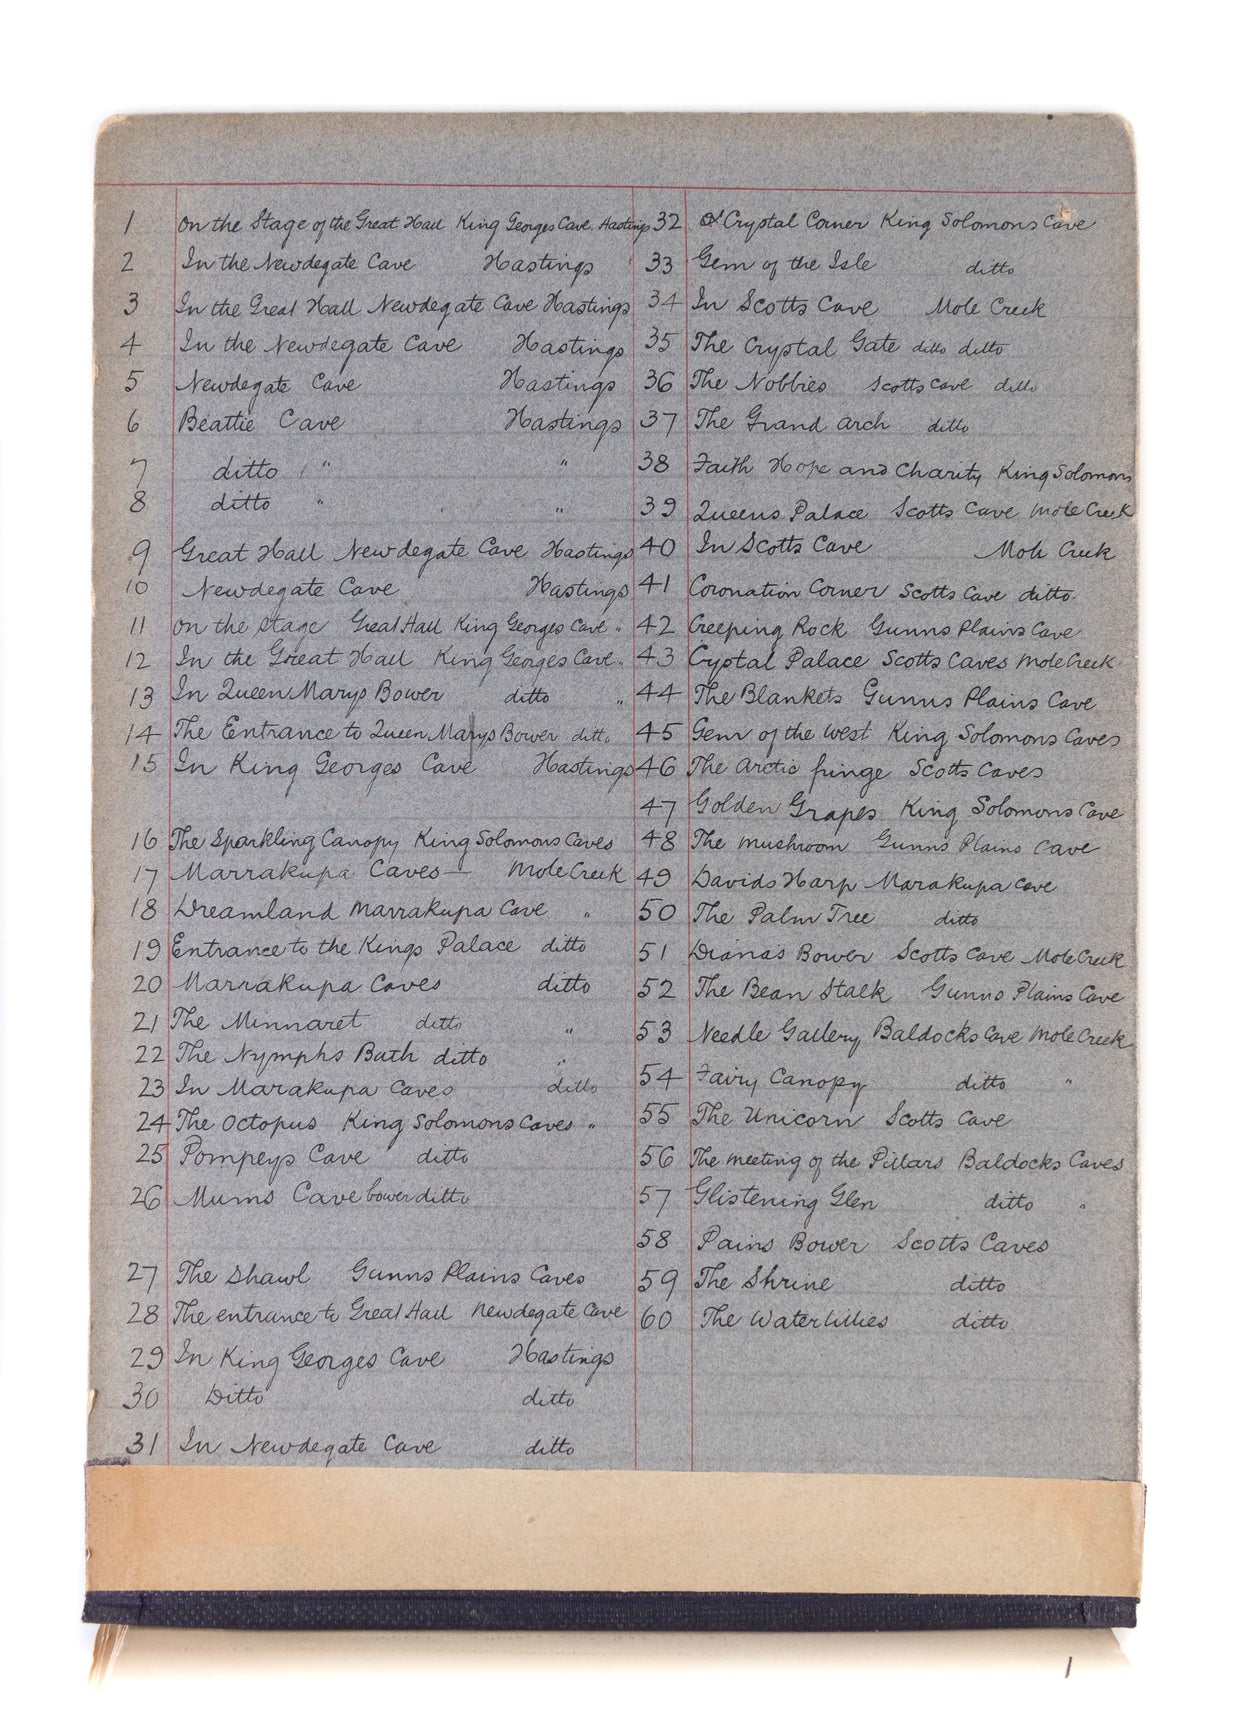 1 On the Stage of the Great Hall King Georges Cave. Hastings
2 In the Newdegate Cave Hastings
3 In the Great Hall Newdegate Cave Hastings
4 In the Newdegate Cave Hastings
5 Newdegate Cave Hastings
6 Beattie Cave Hastings
7 ditto " "
8 ditto " "
9 Great Hall Newdegate Cave Hastings
10 Newdegate Cave Hastings
11 On the Stage Great Hall King Georges Cave "
12 In the Great Hall King Georges Cave "
13 In Queen Marys Bower ditto "
14 The Entrance to Queen Marys Bower ditto
15 In King Georges Cave Hastings
16 The Sparkling Canopy King Solomons Caves
17 Marrakupa Caves — Mole Creek
18 Dreamland Marrakupa Cave "
19 Entrance to the Kings Palace ditto
20 Marrakupa Caves ditto
21 The Minnaret ditto "
22 The Nymphs Bath ditto "
23 In Marakupa Caves ditto
24 The Octopus King Solomons Caves "
25 Pompeys Cave ditto
26 Mums Cave bower ditto
27 The Shawl Gunns Plains Caves
28 The entrance to Great Hall Newdegate Cave
29 In King Georges Cave Hastings
30 Ditto ditto
31 In Newdegate Cave ditto
32 Crystal Corner King Solomons Cave
33 Gem of the Isle ditto
34 In Scotts Cave Mole Creek
35 The Crystal Gate ditto ditto
36 The Nobbies Scotts Cave ditto
37 The Grand Arch ditto
38 Faith Hope and Charity King Solomons
39 Queens Palace Scotts Cave Mole Creek
40 In Scotts Cave Mole Creek
41 Coronation Corner Scotts Cave ditto.
42 Creeping Rock Gunns Plains Cave
43 Cryotal Palace Scotts Caves Mole Creek
44 The Blankets Gunns Plains Cave
45 Gem of the West King Solomons Caves
46 The Arctic fringe Scotts Caves
47 Golden Grapes King Solomons Cave
48 The Mushroom Gunns Plains Cave
49 Davids Harp Marakupa Cave
50 The Palm Tree ditto
51 Diana's Bower Scotts Cave Mole Creek
52 The Bean Stalk Gunns Plains Cave
53 Needle Gallery Baldocks Cave Mole Creek
54 Fairy Canopy ditto "
55 The Unicorn Scotts Cave
56 The meeting of the Pillars Baldocks Caves
57 Glistening Glen ditto "
58 Pains Bower Scotts Caves
59 The Shrine ditto
60 The Waterlillies ditto